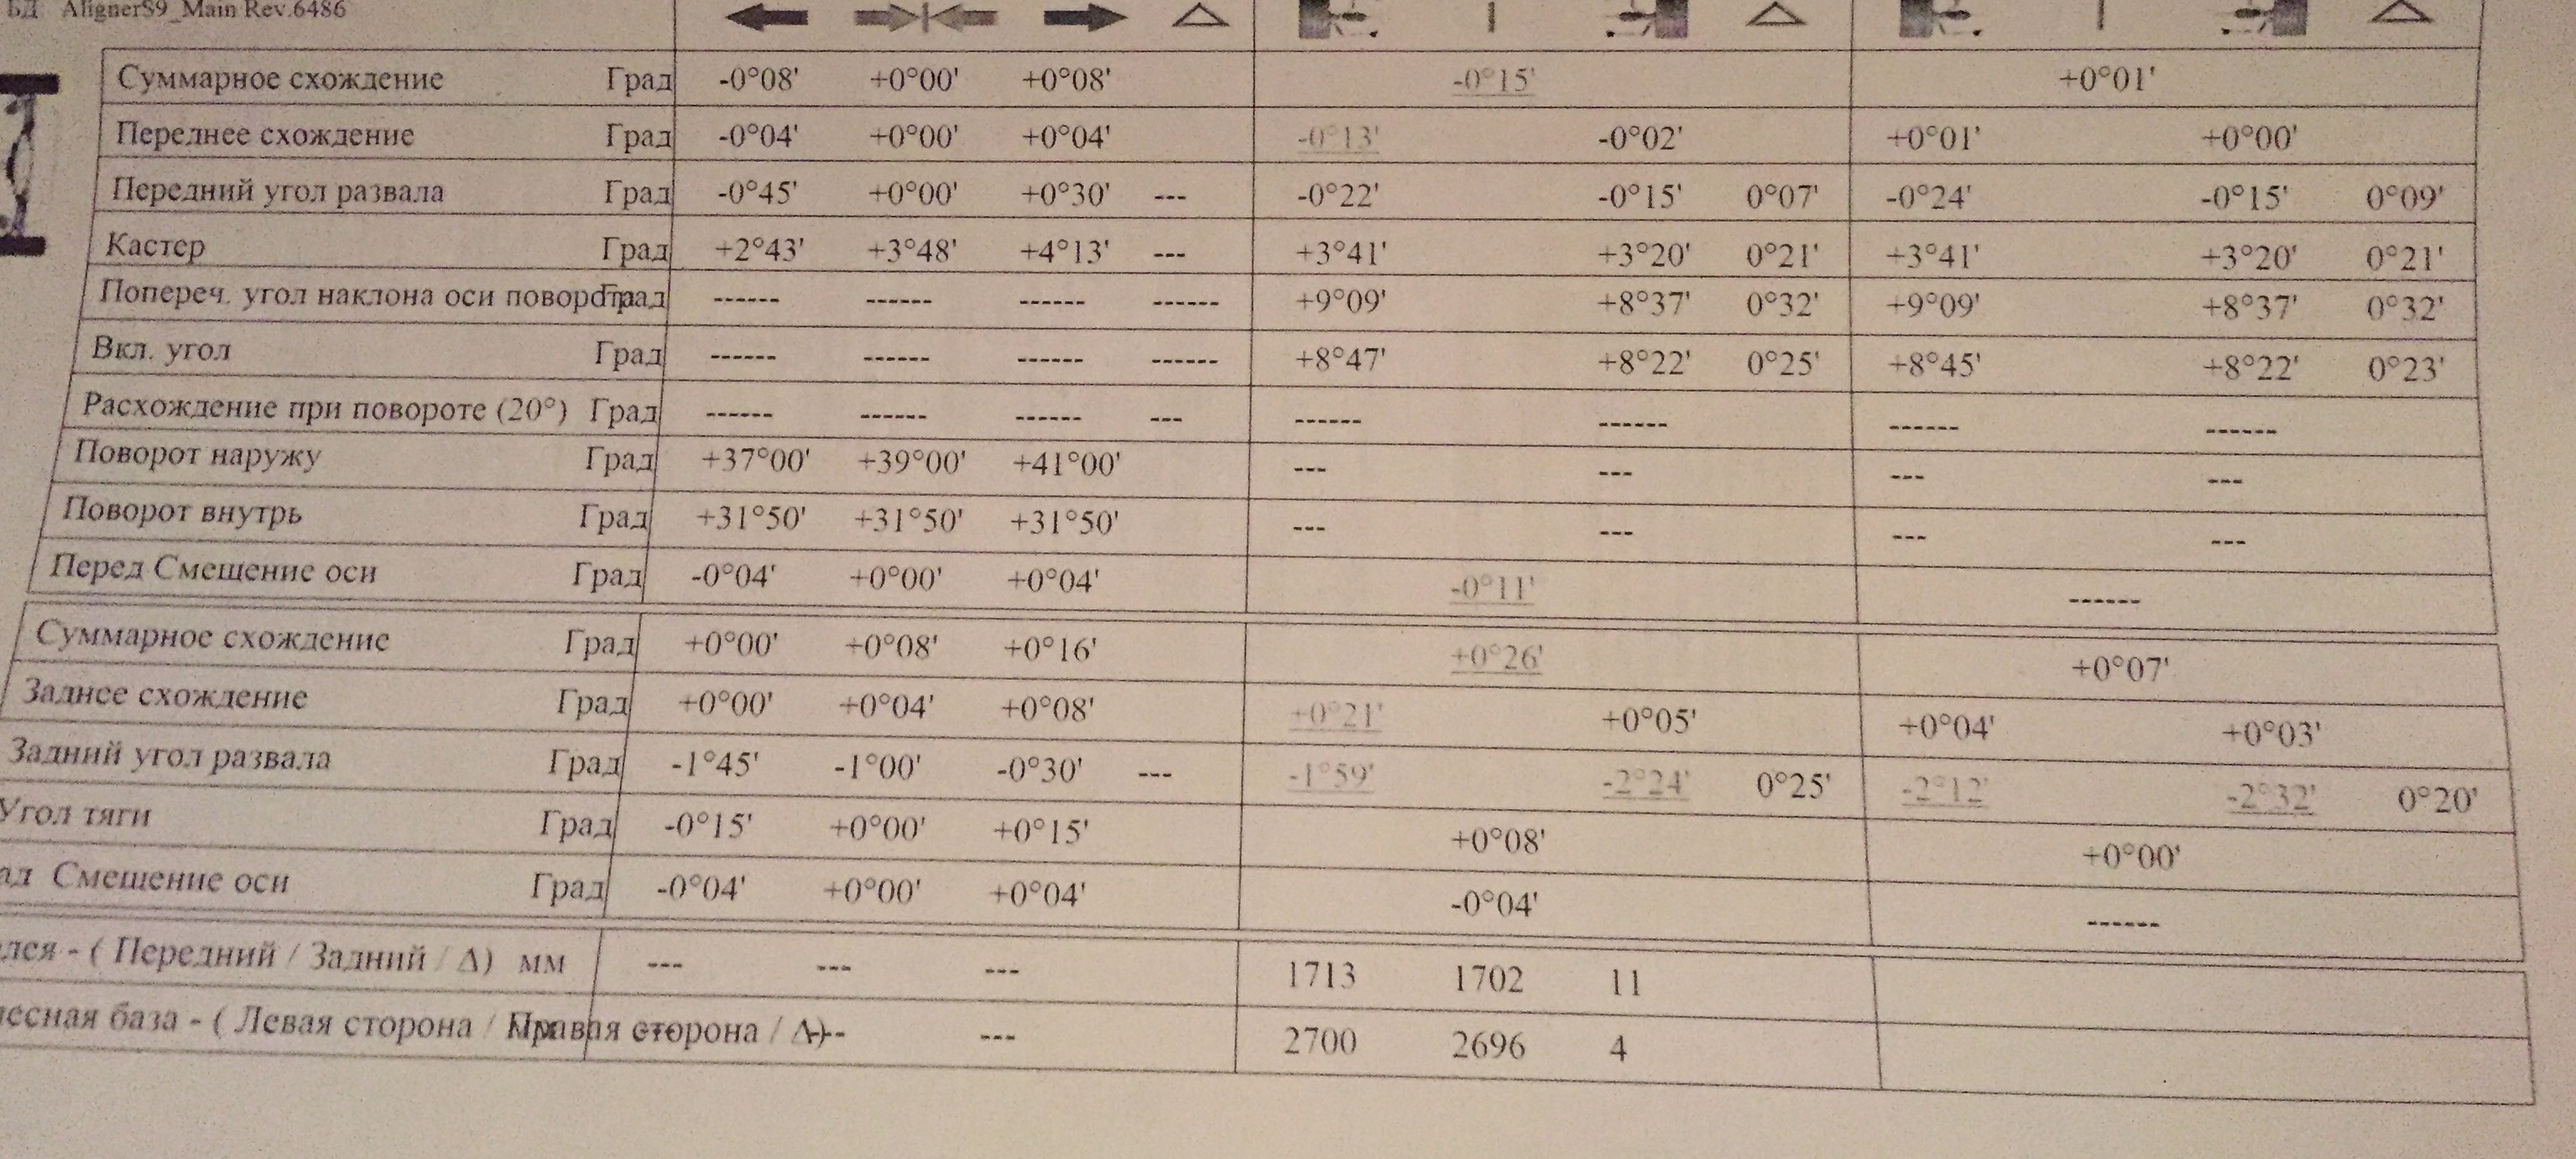 БД: AlignerS9_Main Rev.6486
Суммарное схождение Град -0°08' +0°00' +0°08' -0°15' +0°01'
Переднее схождение Град -0°04' +0°00' +0°04' -0°13' -0°02' +0°01' +0°00'
Передний угол развала Град -0°45' +0°00' +0°30' --- -0°22' -0°15' 0°07' -0°24' -0°15' 0°09'
Кастер Град +2°43' +3°48' +4°13' --- +3°41' +3°20' 0°21' +3°41' +3°20' 0°21'
Попереч. угол наклона оси поворота Град ------ ------ ------ ------ +9°09' +8°37' 0°32' +9°09' +8°37' 0°32'
Вкл. угол Град ------ ------ ------ ------ +8°47' +8°22' 0°25' +8°45' +8°22' 0°23'
Расхождение при повороте (20°) Град ------ ------ ------ --- ------ ------ ------ ------
Поворот наружу Град +37°00' +39°00' +41°00' --- --- --- ---
Поворот внутрь Град +31°50' +31°50' +31°50' --- --- --- ---
Перед Смещение оси Град -0°04' +0°00' +0°04' -0°11' ------
Суммарное схождение Град +0°00' +0°08' +0°16' +0°26' +0°07'
Заднее схождение Град +0°00' +0°04' +0°08' +0°21' +0°05' +0°04' +0°03'
Задний угол развала Град -1°45' -1°00' -0°30' --- -1°59' -2°24' 0°25' -2°12' -2°32' 0°20'
Угол тяги Град -0°15' +0°00' +0°15' +0°08' +0°00'
ад Смещение оси Град -0°04' +0°00' +0°04' -0°04' ------
лея - ( Передний / Задний / Δ) мм --- --- --- 1713 1702 11
лесная база - ( Левая сторона / Правая сторона / Δ) мм --- --- --- 2700 2696 4